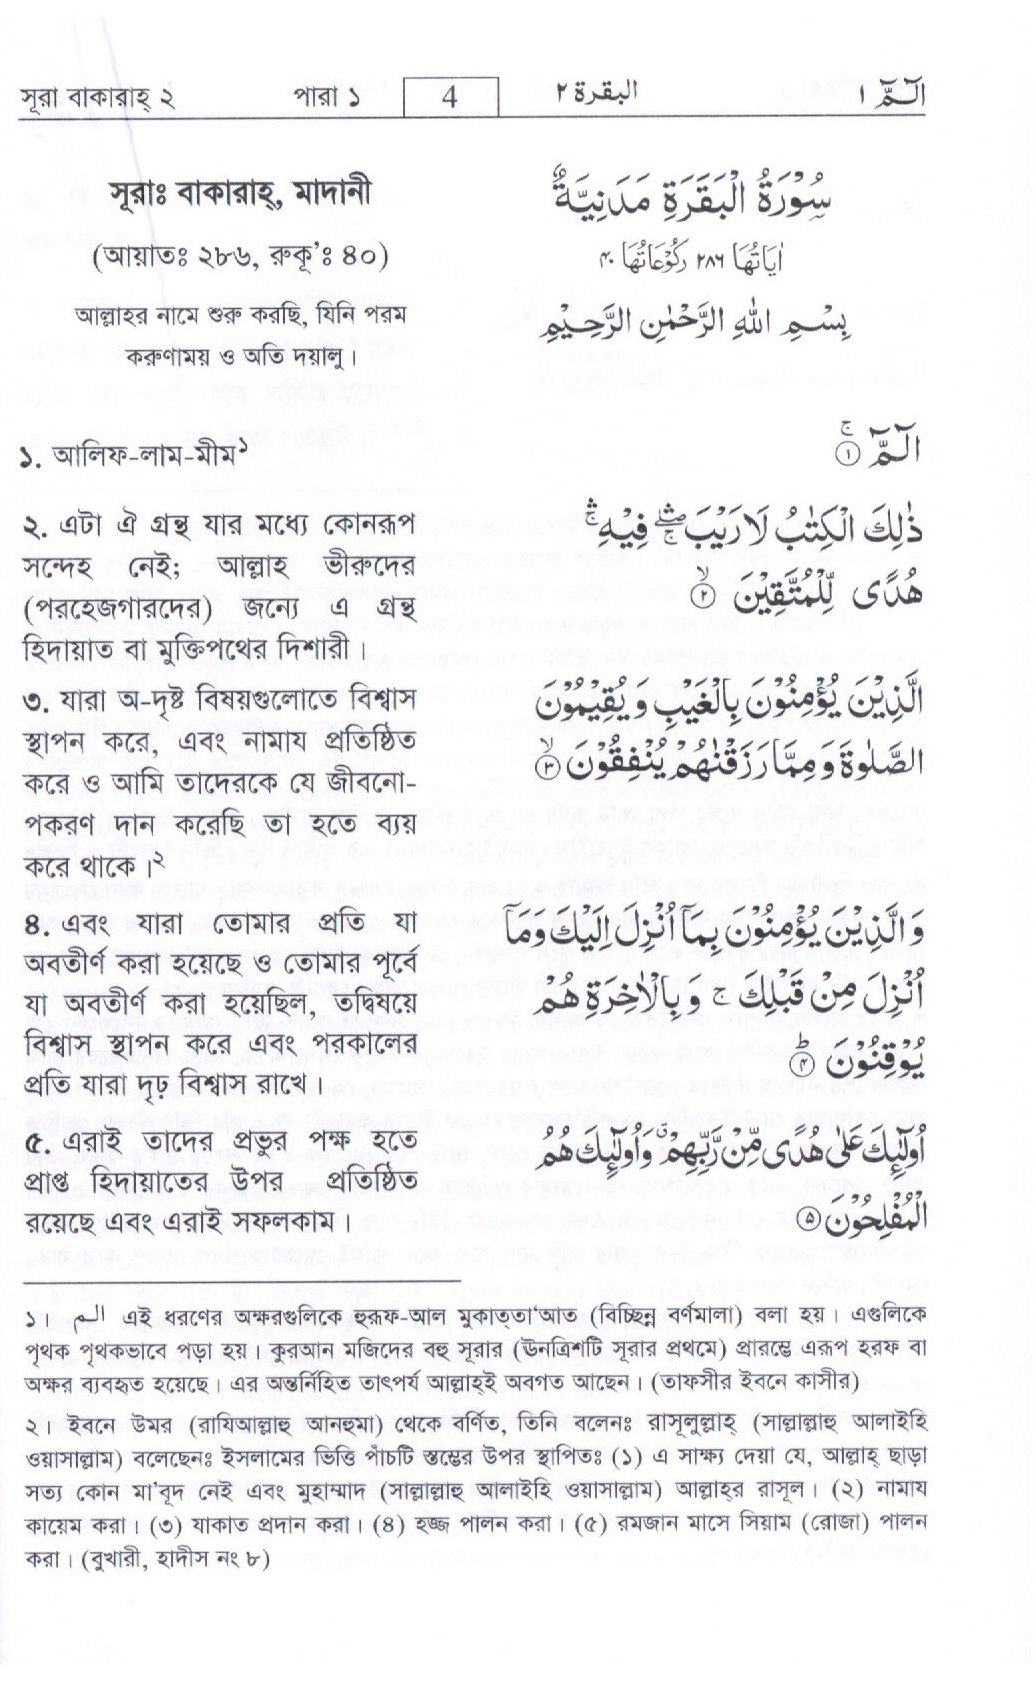 সূরা বাকারাহ্ ২ পারা ১ 4 البقرة ٢ الٓمّٓ ١
সূরাঃ বাকারাহ্, মাদানী
(আয়াতঃ ২৮৬, রুকূ’ঃ ৪০)
আল্লাহর নামে শুরু করছি, যিনি পরম
করুণাময় ও অতি দয়ালু।
سُوْرَةُ الْبَقَرَةِ مَدَنِيَّةٌ
اٰيَاتُهَا ٢٨٦ رُكُوْعَاتُهَا ٤٠
بِسْمِ اللهِ الرَّحْمٰنِ الرَّحِيْمِ
১. আলিফ-লাম-মীম১
الٓمّٓ ۚ ١
২. এটা ঐ গ্রন্থ যার মধ্যে কোনরূপ
সন্দেহ নেই; আল্লাহ ভীরুদের
(পরহেজগারদের) জন্যে এ গ্রন্থ
হিদায়াত বা মুক্তিপথের দিশারী।
ذٰلِكَ الْكِتٰبُ لَا رَيْبَ ۛۖۚ فِيْهِ ۛۚ
هُدًى لِّلْمُتَّقِيْنَ ۙ ٢
৩. যারা অ-দৃষ্ট বিষয়গুলোতে বিশ্বাস
স্থাপন করে, এবং নামায প্রতিষ্ঠিত
করে ও আমি তাদেরকে যে জীবনো-
পকরণ দান করেছি তা হতে ব্যয়
করে থাকে।২
الَّذِيْنَ يُؤْمِنُوْنَ بِالْغَيْبِ وَيُقِيْمُوْنَ
الصَّلٰوةَ وَمِمَّا رَزَقْنٰهُمْ يُنْفِقُوْنَ ۙ ٣
৪. এবং যারা তোমার প্রতি যা
অবতীর্ণ করা হয়েছে ও তোমার পূর্বে
যা অবতীর্ণ করা হয়েছিল, তদ্বিষয়ে
বিশ্বাস স্থাপন করে এবং পরকালের
প্রতি যারা দৃঢ় বিশ্বাস রাখে।
وَالَّذِيْنَ يُؤْمِنُوْنَ بِمَآ اُنْزِلَ اِلَيْكَ وَمَآ
اُنْزِلَ مِنْ قَبْلِكَ ۚ وَبِالْاٰخِرَةِ هُمْ
يُوْقِنُوْنَ ؕ ٤
৫. এরাই তাদের প্রভুর পক্ষ হতে
প্রাপ্ত হিদায়াতের উপর প্রতিষ্ঠিত
রয়েছে এবং এরাই সফলকাম।
اُولٰٓئِكَ عَلٰى هُدًى مِّنْ رَّبِّهِمْ ۙ وَاُولٰٓئِكَ هُمُ
الْمُفْلِحُوْنَ ٥
১। الـم এই ধরণের অক্ষরগুলিকে হুরূফ-আল মুকাত্তা‘আত (বিচ্ছিন্ন বর্ণমালা) বলা হয়। এগুলিকে
পৃথক পৃথকভাবে পড়া হয়। কুরআন মজিদের বহু সূরার (ঊনত্রিশটি সূরার প্রথমে) প্রারম্ভে এরূপ হরফ বা
অক্ষর ব্যবহৃত হয়েছে। এর অন্তর্নিহিত তাৎপর্য আল্লাহ্ই অবগত আছেন। (তাফসীর ইবনে কাসীর)
২। ইবনে উমর (রাযিআল্লাহু আনহুমা) থেকে বর্ণিত, তিনি বলেনঃ রাসূলুল্লাহ্ (সাল্লাল্লাহু আলাইহি
ওয়াসাল্লাম) বলেছেনঃ ইসলামের ভিত্তি পাঁচটি স্তম্ভের উপর স্থাপিতঃ (১) এ সাক্ষ্য দেয়া যে, আল্লাহ্ ছাড়া
সত্য কোন মা’বূদ নেই এবং মুহাম্মাদ (সাল্লাল্লাহু আলাইহি ওয়াসাল্লাম) আল্লাহ্‌র রাসূল। (২) নামায
কায়েম করা। (৩) যাকাত প্রদান করা। (৪) হজ্জ পালন করা। (৫) রমজান মাসে সিয়াম (রোজা) পালন
করা। (বুখারী, হাদীস নং ৮)